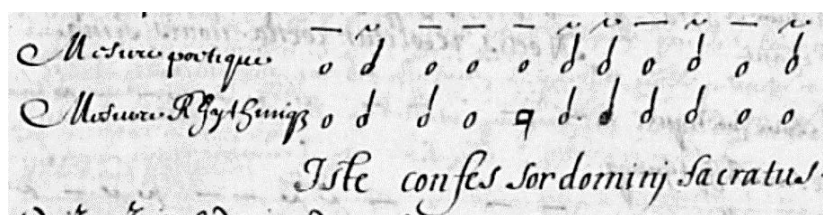 Mesure poetique
Mesure Rhythmiq
Iste confes sor dominj sacratus.